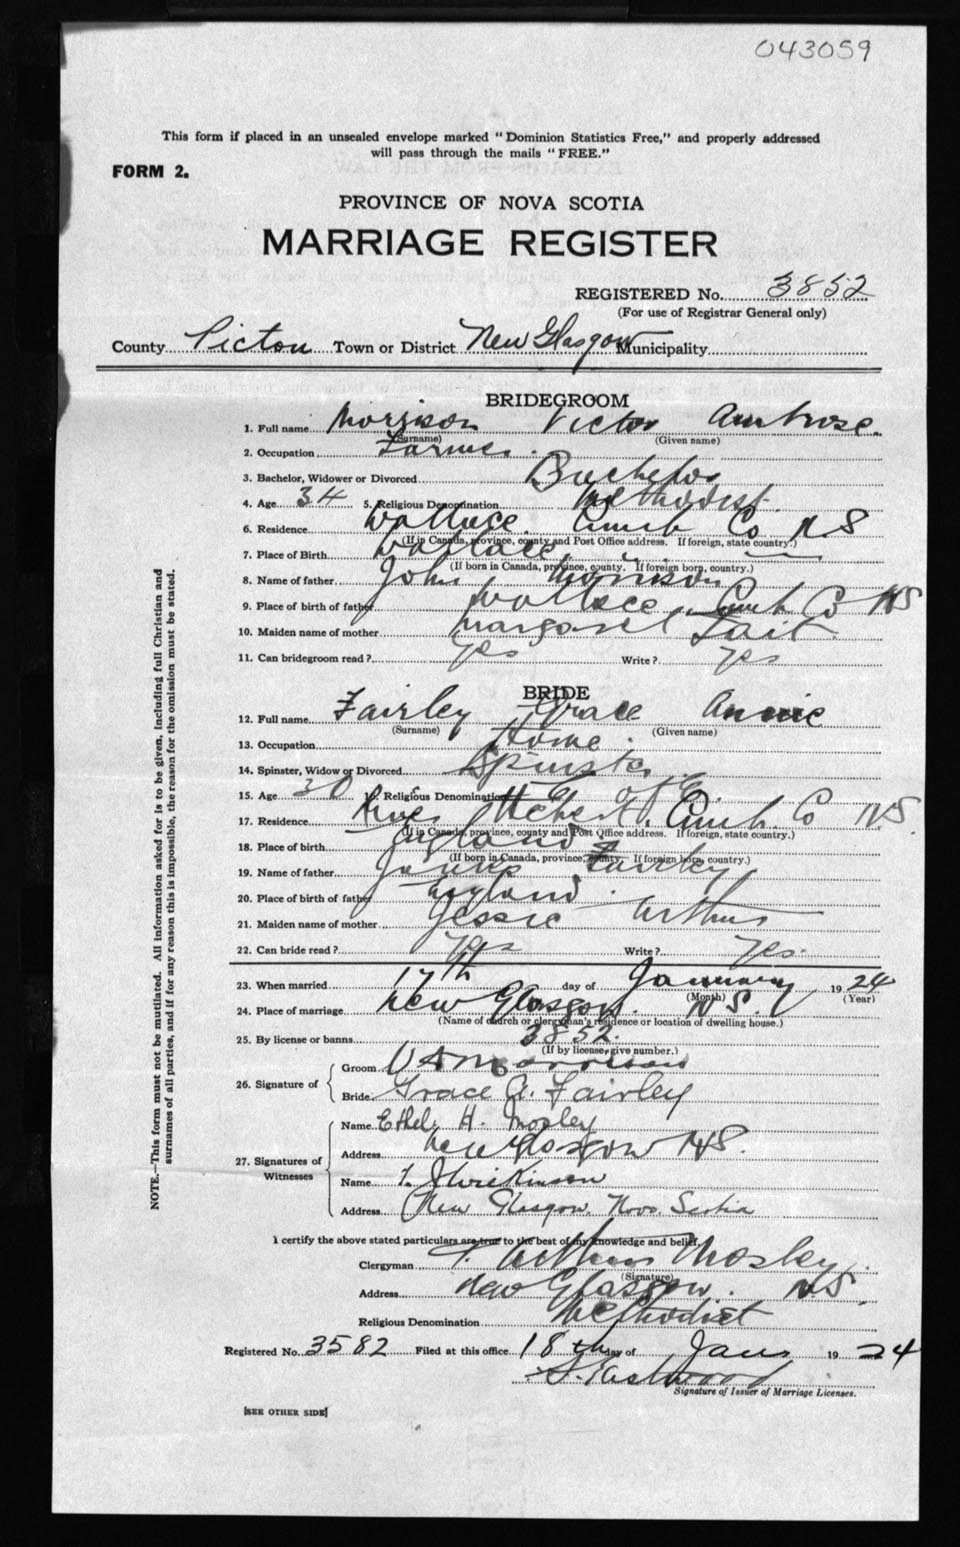 043059
This form if placed in an unsealed envelope marked "Dominion Statistics Free," and properly addressed
will pass through the mails "FREE."
FORM 2.
PROVINCE OF NOVA SCOTIA
MARRIAGE REGISTER
REGISTERED No. 3852
(For use of Registrar General only)
County Pictou Town or District New Glasgow Municipality
BRIDEGROOM
1. Full name Morrison Victor Ambrose
(Surname) (Given name)
2. Occupation Farmer
3. Bachelor, Widower or Divorced Bachelor
4. Age 34 5. Religious Denomination Methodist
6. Residence Wallace Cumb Co NS
(If in Canada, province, county and Post Office address. If foreign, state country.)
7. Place of Birth Wallace
(If born in Canada, province, county. If foreign born, country.)
8. Name of father John Morrison
9. Place of birth of father Wallace, Cumb Co NS
10. Maiden name of mother Margaret Tait
11. Can bridegroom read? yes Write? yes
BRIDE
12. Full name Fairley Grace Annie
(Surname) (Given name)
13. Occupation Home
14. Spinster, Widow or Divorced Spinster
15. Age 30 16. Religious Denomination C of E
17. Residence River Hebert Cumb. Co NS.
(If in Canada, province, county and Post Office address. If foreign, state country.)
18. Place of birth England
(If born in Canada, province, county. If foreign born, country.)
19. Name of father James Fairley
20. Place of birth of father England
21. Maiden name of mother Jessie Arthur
22. Can bride read? yes Write? yes
23. When married 17th day of January 1924
(Month) (Year)
24. Place of marriage New Glasgow. NS.
(Name of church or clergyman's residence or location of dwelling house.)
25. By license or banns 3852.
(If by license, give number.)
26. Signature of
Groom V A Morrison
Bride Grace A. Fairley
27. Signatures of Witnesses
Name Ethel H. Mosley
Address New Glasgow NS.
Name F. J. Wilkinson
Address New Glasgow, Nova Scotia
I certify the above stated particulars are true to the best of my knowledge and belief.
Clergyman F. Arthur Mosley
(Signature)
Address New Glasgow. NS.
Religious Denomination Methodist
Registered No. 3582 Filed at this office 18th day of Jan 1924
Signature of Issuer of Marriage Licenses.
[SEE OTHER SIDE]
NOTE.—This form must not be mutilated. All information asked for is to be given, including full Christian and
surnames of all parties, and if for any reason this is impossible, the reason for the omission must be stated.